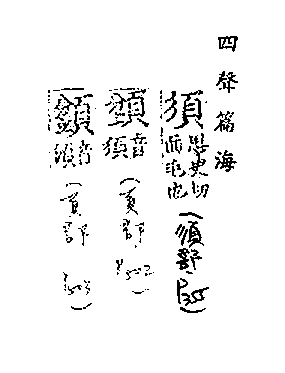 四聲篇海
須 思臾切 面毛也 (須部 P355
音須 (頁部 P502)
音須 (頁部 P503)